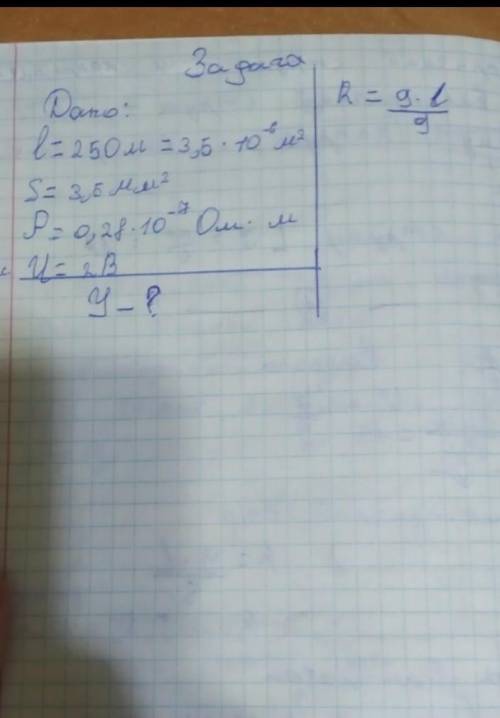 Задача
Дано:
l = 250м = 3,5 · 10⁻⁶ м²
S = 3,5 мм²
ρ = 0,28 · 10⁻⁷ Ом · м
U = 2В
У – ?
R = 9 · l / 9